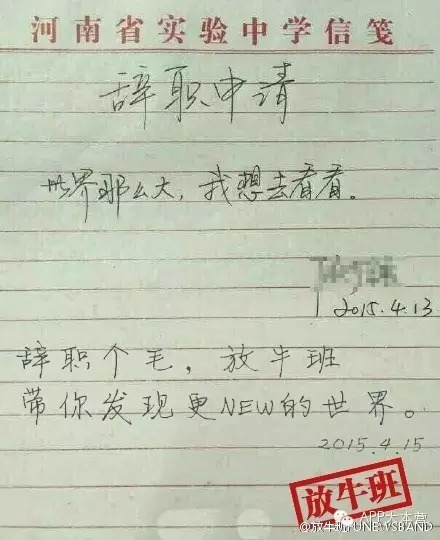 河南省实验中学信笺
辞职申请
世界那么大，我想去看看。
2015.4.13
辞职个毛，放牛班
带你发现更NEW的世界。
2015.4.15
放牛班
APP大本营
@放牛班UNEWSBAND